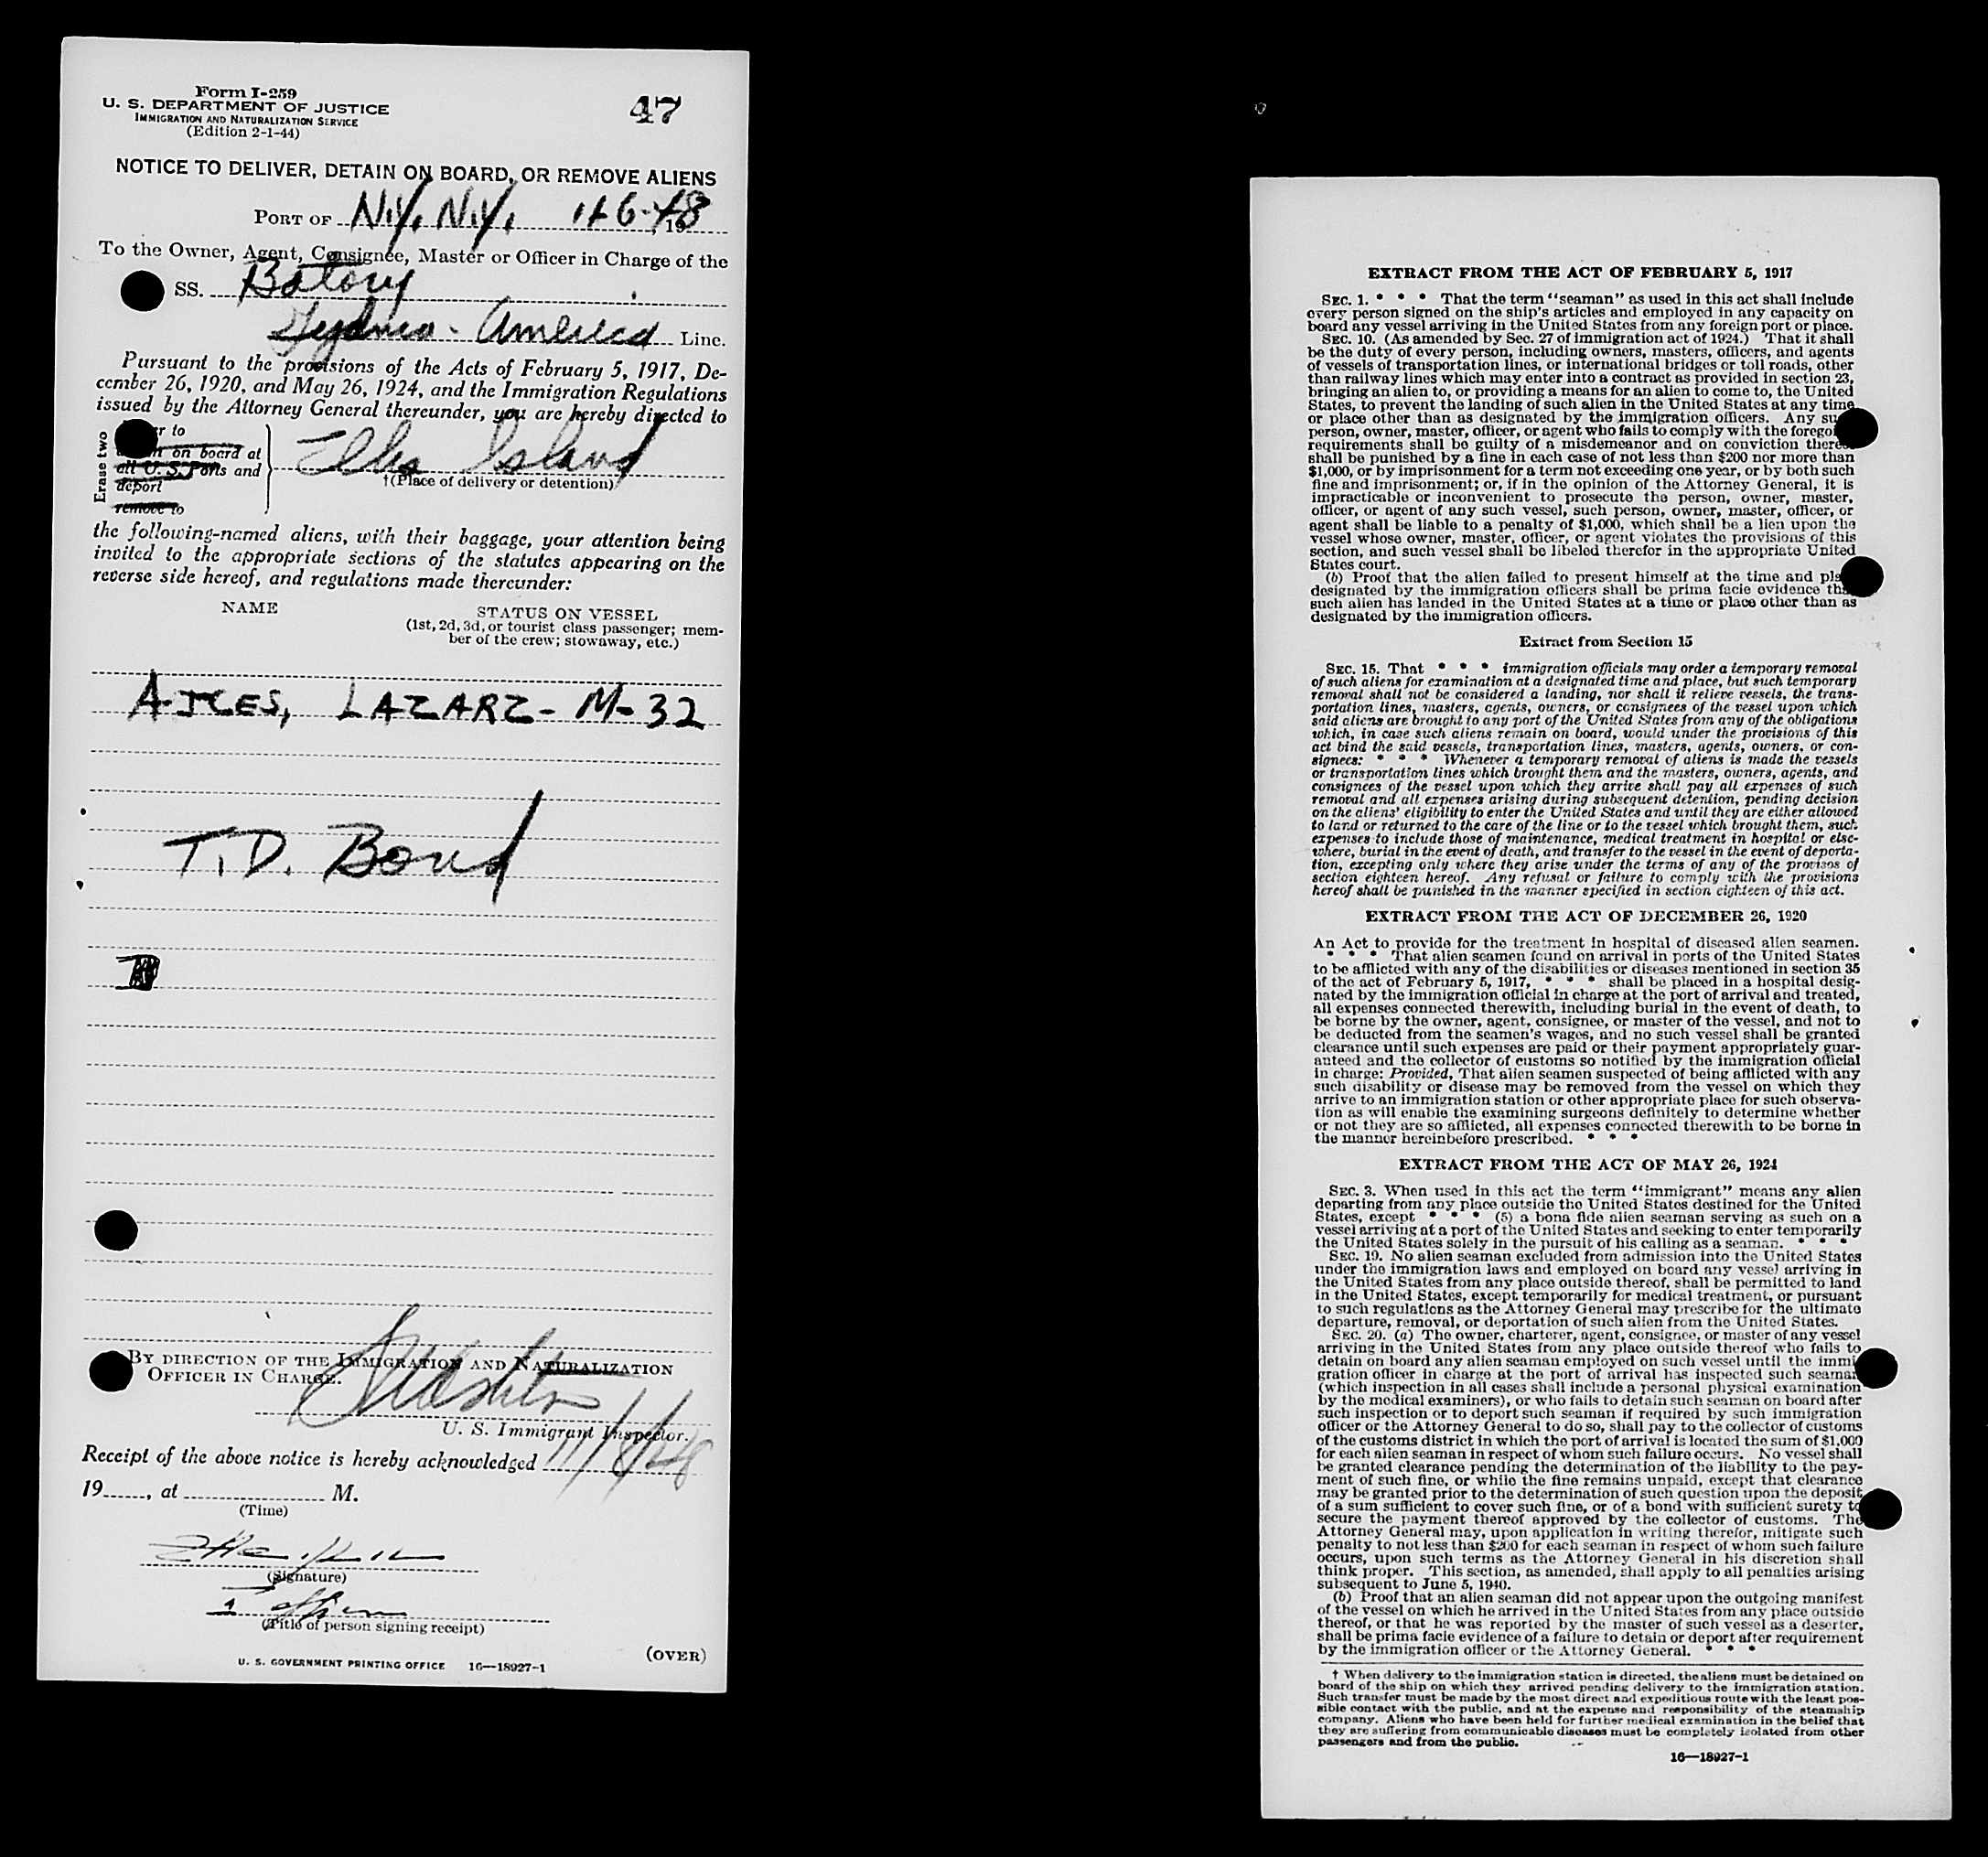 Form I-259
U. S. DEPARTMENT OF JUSTICE
IMMIGRATION AND NATURALIZATION SERVICE
(Edition 2-1-44)
47
NOTICE TO DELIVER, DETAIN ON BOARD, OR REMOVE ALIENS
PORT OF N.Y. N.Y. 11-6-48, 19
To the Owner, Agent, Consignee, Master or Officer in Charge of the
SS. Batory
Gydnia - America Line.
Pursuant to the provisions of the Acts of February 5, 1917, De-
cember 26, 1920, and May 26, 1924, and the Immigration Regulations
issued by the Attorney General thereunder, you are hereby directed to
Erase two
to
on board at
all U. S. Ports and
deport
remove to
Ellis Island
†(Place of delivery or detention)
the following-named aliens, with their baggage, your attention being
invited to the appropriate sections of the statutes appearing on the
reverse side hereof, and regulations made thereunder:
NAME
STATUS ON VESSEL
(1st, 2d, 3d, or tourist class passenger; mem-
ber of the crew; stowaway, etc.)
LAZARZ - M-32
T.D. Bond
BY DIRECTION OF THE IMMIGRATION AND NATURALIZATION
OFFICER IN CHARGE.
U. S. Immigrant Inspector.
Receipt of the above notice is hereby acknowledged 11/8/48
19, at M.
(Time)
(Signature)
(Title of person signing receipt)
(OVER)
U. S. GOVERNMENT PRINTING OFFICE 16—18927-1
EXTRACT FROM THE ACT OF FEBRUARY 5, 1917
SEC. 1. * * * That the term "seaman" as used in this act shall include
every person signed on the ship's articles and employed in any capacity on
board any vessel arriving in the United States from any foreign port or place.
SEC. 10. (As amended by Sec. 27 of immigration act of 1924.) That it shall
be the duty of every person, including owners, masters, officers, and agents
of vessels of transportation lines, or international bridges or toll roads, other
than railway lines which may enter into a contract as provided in section 23,
bringing an alien to, or providing a means for an alien to come to, the United
States, to prevent the landing of such alien in the United States at any time
or place other than as designated by the immigration officers. Any
person, owner, master, officer, or agent who fails to comply with the
requirements shall be guilty of a misdemeanor and on conviction
shall be punished by a fine in each case of not less than $200 nor more than
$1,000, or by imprisonment for a term not exceeding one year, or by both such
fine and imprisonment; or, if in the opinion of the Attorney General, it is
impracticable or inconvenient to prosecute the person, owner, master,
officer, or agent of any such vessel, such person, owner, master, officer, or
agent shall be liable to a penalty of $1,000, which shall be a lien upon the
vessel whose owner, master, officer, or agent violates the provisions of this
section, and such vessel shall be libeled therefor in the appropriate United
States court.
(b) Proof that the alien failed to present himself at the time and
designated by the immigration officers shall be prima facie evidence
such alien has landed in the United States at a time or place other than as
designated by the immigration officers.
Extract from Section 15
SEC. 15. That * * * immigration officials may order a temporary removal
of such aliens for examination at a designated time and place, but such temporary
removal shall not be considered a landing, nor shall it relieve vessels, the trans-
portation lines, masters, agents, owners, or consignees of the vessel upon which
said aliens are brought to any port of the United States from any of the obligations
which, in case such aliens remain on board, would under the provisions of this
act bind the said vessels, transportation lines, masters, agents, owners, or con-
signees: * * * Whenever a temporary removal of aliens is made the vessels
or transportation lines which brought them and the masters, owners, agents, and
consignees of the vessel upon which they arrive shall pay all expenses of such
removal and all expenses arising during subsequent detention, pending decision
on the aliens' eligibility to enter the United States and until they are either allowed
to land or returned to the care of the line or to the vessel which brought them, such
expenses to include those of maintenance, medical treatment in hospital or else-
where, burial in the event of death, and transfer to the vessel in the event of deporta-
tion, excepting only where they arise under the terms of any of the provisos of
section eighteen hereof. Any refusal or failure to comply with the provisions
hereof shall be punished in the manner specified in section eighteen of this act.
EXTRACT FROM THE ACT OF DECEMBER 26, 1920
An Act to provide for the treatment in hospital of diseased alien seamen.
* * * That alien seamen found on arrival in ports of the United States
to be afflicted with any of the disabilities or diseases mentioned in section 35
of the act of February 5, 1917, * * * shall be placed in a hospital desig-
nated by the immigration official in charge at the port of arrival and treated,
all expenses connected therewith, including burial in the event of death, to
be borne by the owner, agent, consignee, or master of the vessel, and not to
be deducted from the seamen's wages, and no such vessel shall be granted
clearance until such expenses are paid or their payment appropriately guar-
anteed and the collector of customs so notified by the immigration official
in charge: Provided, That alien seamen suspected of being afflicted with any
such disability or disease may be removed from the vessel on which they
arrive to an immigration station or other appropriate place for such observa-
tion as will enable the examining surgeons definitely to determine whether
or not they are so afflicted, all expenses connected therewith to be borne in
the manner hereinbefore prescribed. * * *
EXTRACT FROM THE ACT OF MAY 26, 1924
SEC. 3. When used in this act the term "immigrant" means any alien
departing from any place outside the United States destined for the United
States, except * * * (5) a bona fide alien seaman serving as such on a
vessel arriving at a port of the United States and seeking to enter temporarily
the United States solely in the pursuit of his calling as a seaman. * * *
SEC. 19. No alien seaman excluded from admission into the United States
under the immigration laws and employed on board any vessel arriving in
the United States from any place outside thereof, shall be permitted to land
in the United States, except temporarily for medical treatment, or pursuant
to such regulations as the Attorney General may prescribe for the ultimate
departure, removal, or deportation of such alien from the United States.
SEC. 20. (a) The owner, charterer, agent, consignee, or master of any vessel
arriving in the United States from any place outside thereof who fails to
detain on board any alien seaman employed on such vessel until the immi-
gration officer in charge at the port of arrival has inspected such seaman
(which inspection in all cases shall include a personal physical examination
by the medical examiners), or who fails to detain such seaman on board after
such inspection or to deport such seaman if required by such immigration
officer or the Attorney General to do so, shall pay to the collector of customs
of the customs district in which the port of arrival is located the sum of $1,000
for each alien seaman in respect of whom such failure occurs. No vessel shall
be granted clearance pending the determination of the liability to the pay-
ment of such fine, or while the fine remains unpaid, except that clearance
may be granted prior to the determination of such question upon the deposit
of a sum sufficient to cover such fine, or of a bond with sufficient surety to
secure the payment thereof approved by the collector of customs. The
Attorney General may, upon application in writing therefor, mitigate such
penalty to not less than $200 for each seaman in respect of whom such failure
occurs, upon such terms as the Attorney General in his discretion shall
think proper. This section, as amended, shall apply to all penalties arising
subsequent to June 5, 1940.
(b) Proof that an alien seaman did not appear upon the outgoing manifest
of the vessel on which he arrived in the United States from any place outside
thereof, or that he was reported by the master of such vessel as a deserter,
shall be prima facie evidence of a failure to detain or deport after requirement
by the immigration officer or the Attorney General. * * *
† When delivery to the immigration station is directed, the aliens must be detained on
board of the ship on which they arrived pending delivery to the immigration station.
Such transfer must be made by the most direct and expeditious route with the least pos-
sible contact with the public, and at the expense and responsibility of the steamship
company. Aliens who have been held for further medical examination in the belief that
they are suffering from communicable diseases must be completely isolated from other
passengers and from the public.
16—18927-1